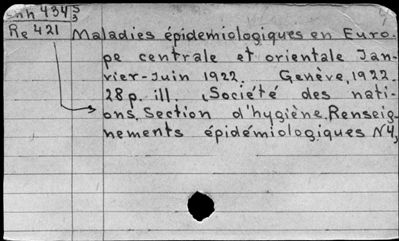 434
Re 421
Maladies épidemiologiques en Euro-
pe centrale et orientale Jan-
vier-Juin 1922. Genève, 1922.
28 p. ill. (Société des nati-
ons, Section d'hygiène. Renseig-
nements épidémiologiques N4)